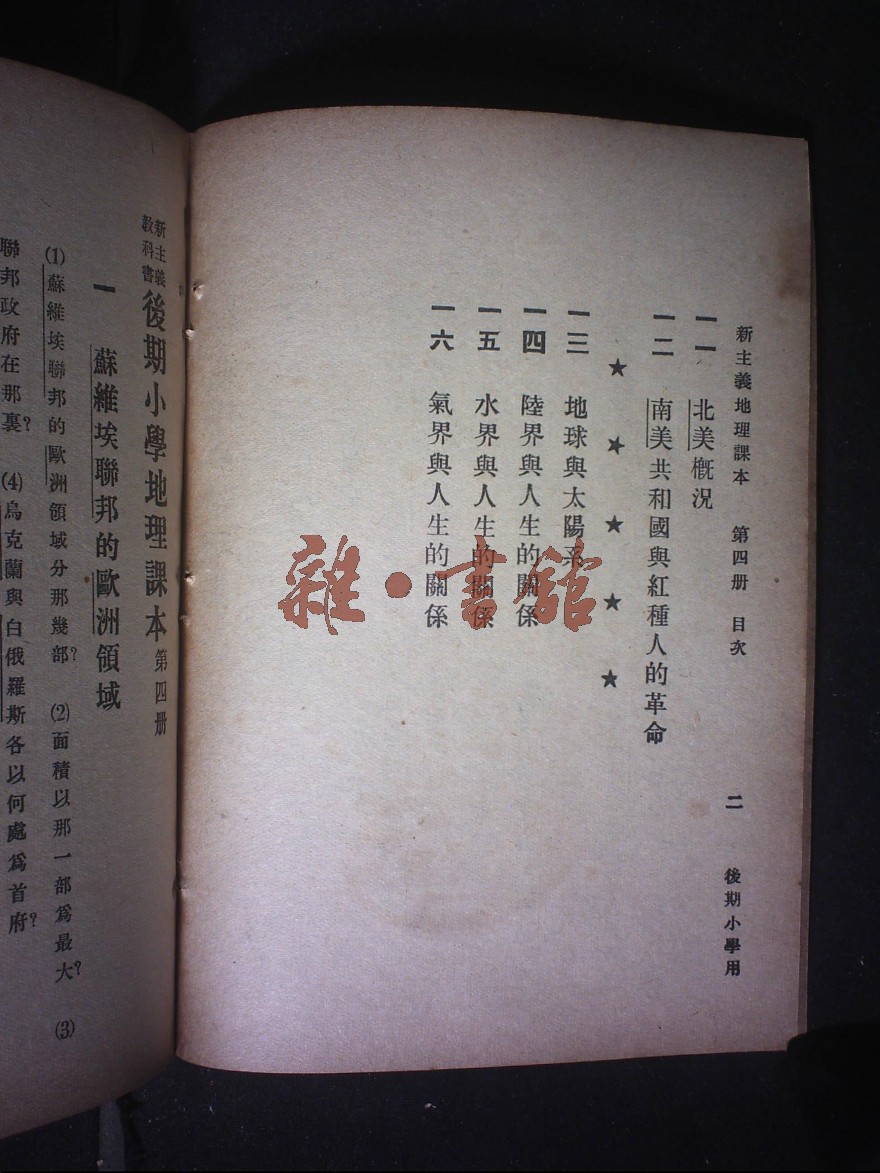 新主義地理課本 第四册 目次 二 後期小學用
一一 北美概况
一二 南美共和國與紅種人的革命
★ ★ ★ ★ ★
一三 地球與太陽系
一四 陸界與人生的關係
一五 水界與人生的關係
一六 氣界與人生的關係
雜·書館
新主義教科書 後期小學地理課本 第四册
一 蘇維埃聯邦的歐洲領域
(1)蘇維埃聯邦的歐洲領域分那幾部? (2)面積以那一部爲最大? (3)
聯邦政府在那裏? (4)烏克蘭與白俄羅斯各以何處爲首府?